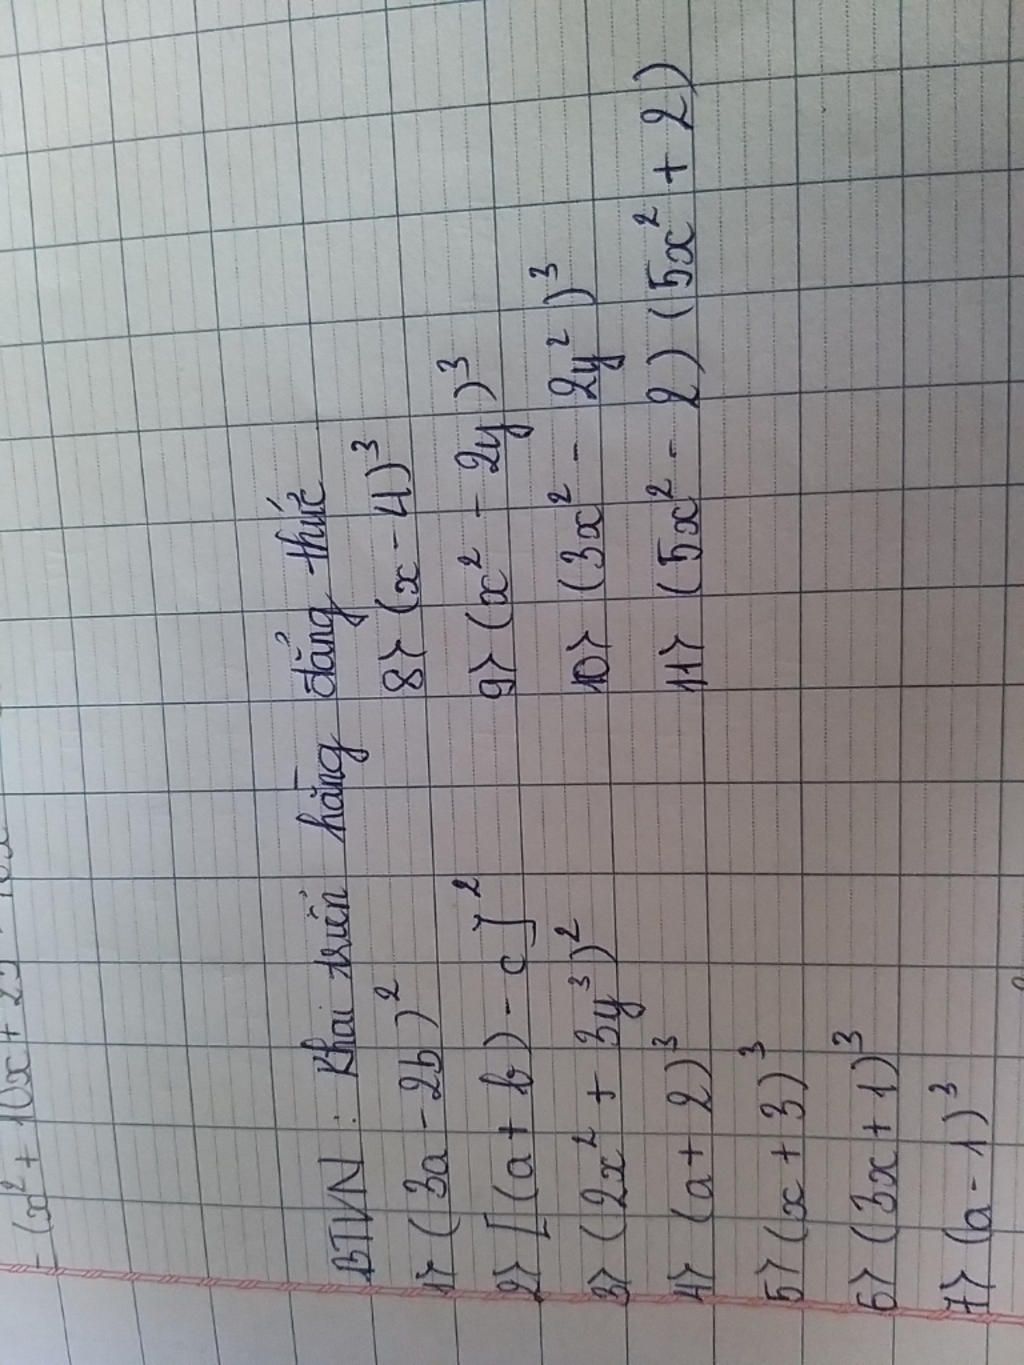 (x² + 10x + 25
BTVN : Khai triển hằng đẳng thức
1> (3a - 2b)²
2> [(a + b) - c]²
3> (2x² + 3y³)²
4> (a + 2)³
5> (x + 3)³
6> (3x + 1)³
7> (a - 1)³
8> (x - 4)³
9> (x² - 2y)³
10> (3x² - 2y²)³
11> (5x² - 2) (5x² + 2)